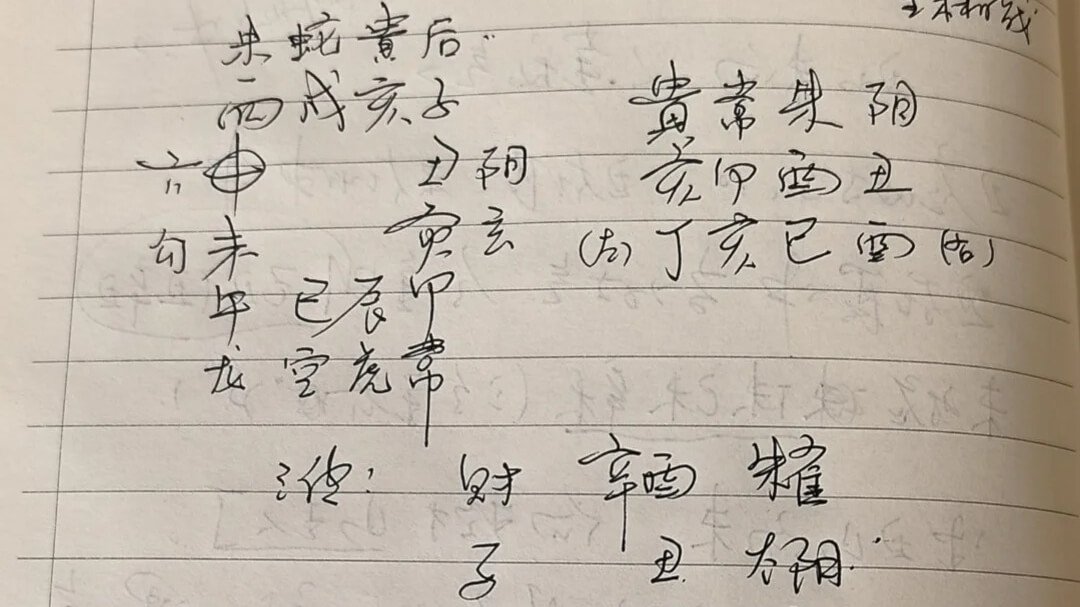 朱蛇貴后
酉戌亥子
六申 丑阴
勾未 寅玄
午巳辰卯
龙空虎常
貴常朱阴
亥卯酉丑
(左)丁亥巳酉(右)
三传: 财 辛酉 朱雀
子 丑 太阴